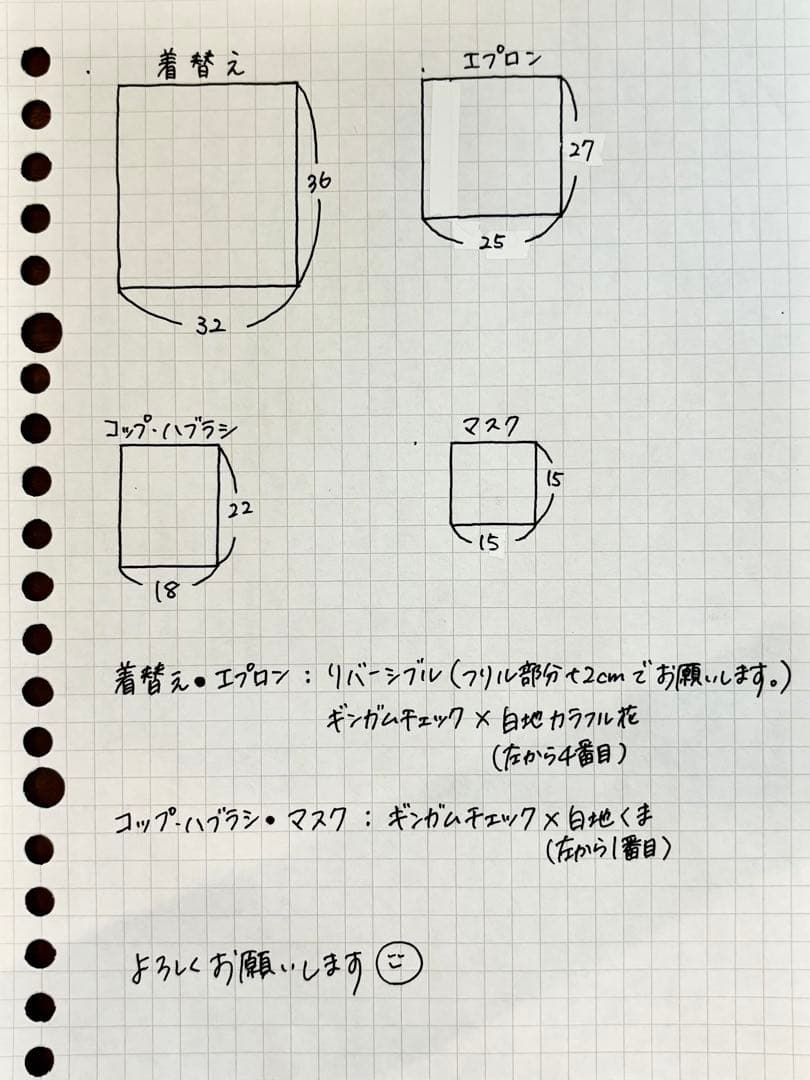 着替え
エプロン
36
27
32
25
コップ・ハブラシ
マスク
22
15
18
15
着替え・エプロン：リバーシブル(フリル部分+2cmでお願いします。)
ギンガムチェック×白地カラフル花
(左から4番目)
コップ・ハブラシ・マスク：ギンガムチェック×白地くま
(左から1番目)
よろしくお願いします